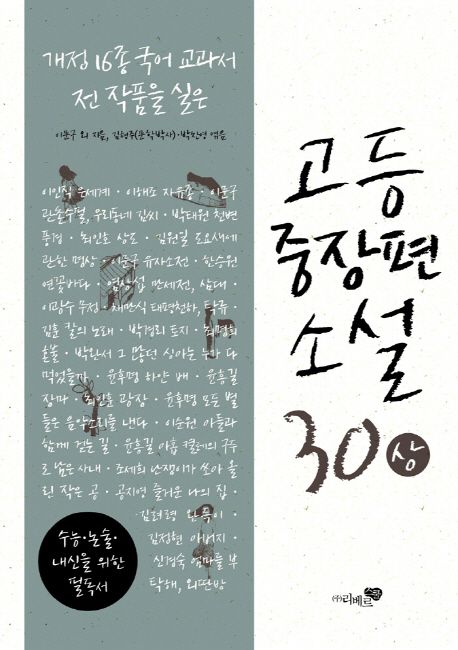 개정 16종 국어 교과서
전 작품을 실은
이문구 외 지음, 김형주(문학박사)·박찬영 엮음
이인직 은세계 · 이해조 자유종 · 이문구
관촌수필, 우리동네 김씨 · 박태원 천변
풍경 · 최인호 상도 · 김원일 도요새에
관한 명상 · 이문구 유자소전 · 한승원
연꽃바다 · 염상섭 만세전, 삼대 ·
이광수 무정 · 채만식 태평천하, 탁류 ·
김훈 칼의 노래 · 박경리 토지 · 최명희
혼불 · 박완서 그 많던 싱아는 누가 다
먹었을까 · 윤후명 하얀 배 · 윤흥길
장마 · 최인훈 광장 · 윤후명 모든 별
들은 음악소리를 낸다 · 이순원 아들과
함께 걷는 길 · 윤흥길 아홉 켤레의 구두
로 남은 사내 · 조세희 난쟁이가 쏘아 올
린 작은 공 · 공지영 즐거운 나의 집 ·
김려령 완득이 ·
김정현 아버지 ·
신경숙 엄마를 부
탁해, 외딴방
수능·논술·
내신을 위한
필독서
고등
중장편
소설
30 상
(주)리베르
스쿨